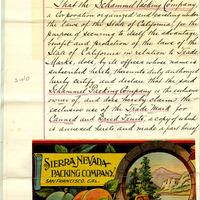 That the Schammel Packing Company,
a Corporation organized and existing under
the laws of the State of California, for the
purpose of securing to itself the advantage,
benefit and protection of the laws of the
State of California in relation to Trade
Marks, does, by its officer whose name is
subscribed hereto, thereunto duly authorized,
hereby certify and declare that the said
Schammel Packing Company is the exclusive
owner of, and does hereby claim the
exclusive use of the Trade Mark for
Canned and Dried Fruits, a copy of which
is annexed hereto and made a part hereof
SIERRA NEVADA
PACKING COMPANY.
SAN FRANCISCO, CAL.